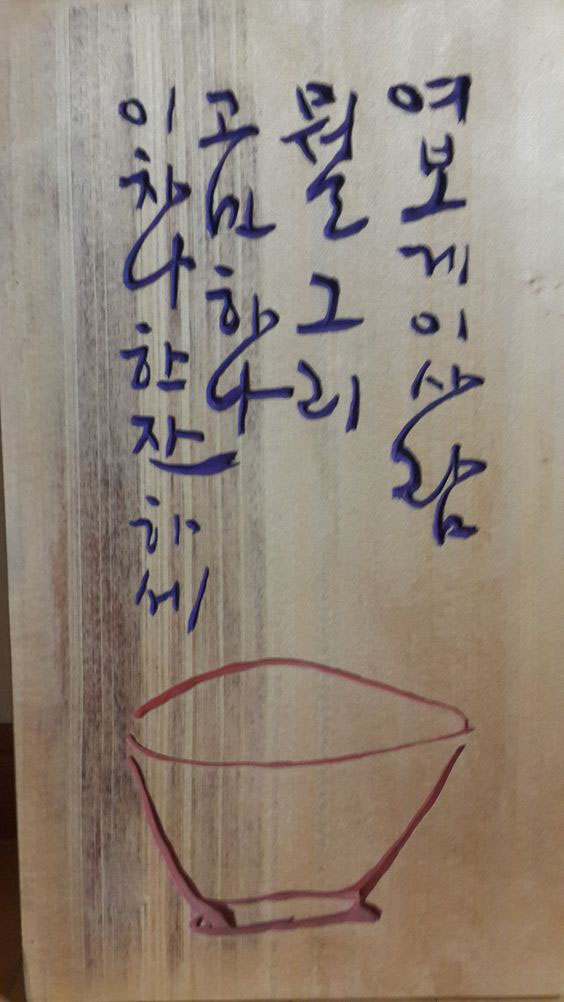 여보게 이 사람
뭘 그리
고민 하나
이 차나 한 잔 하세